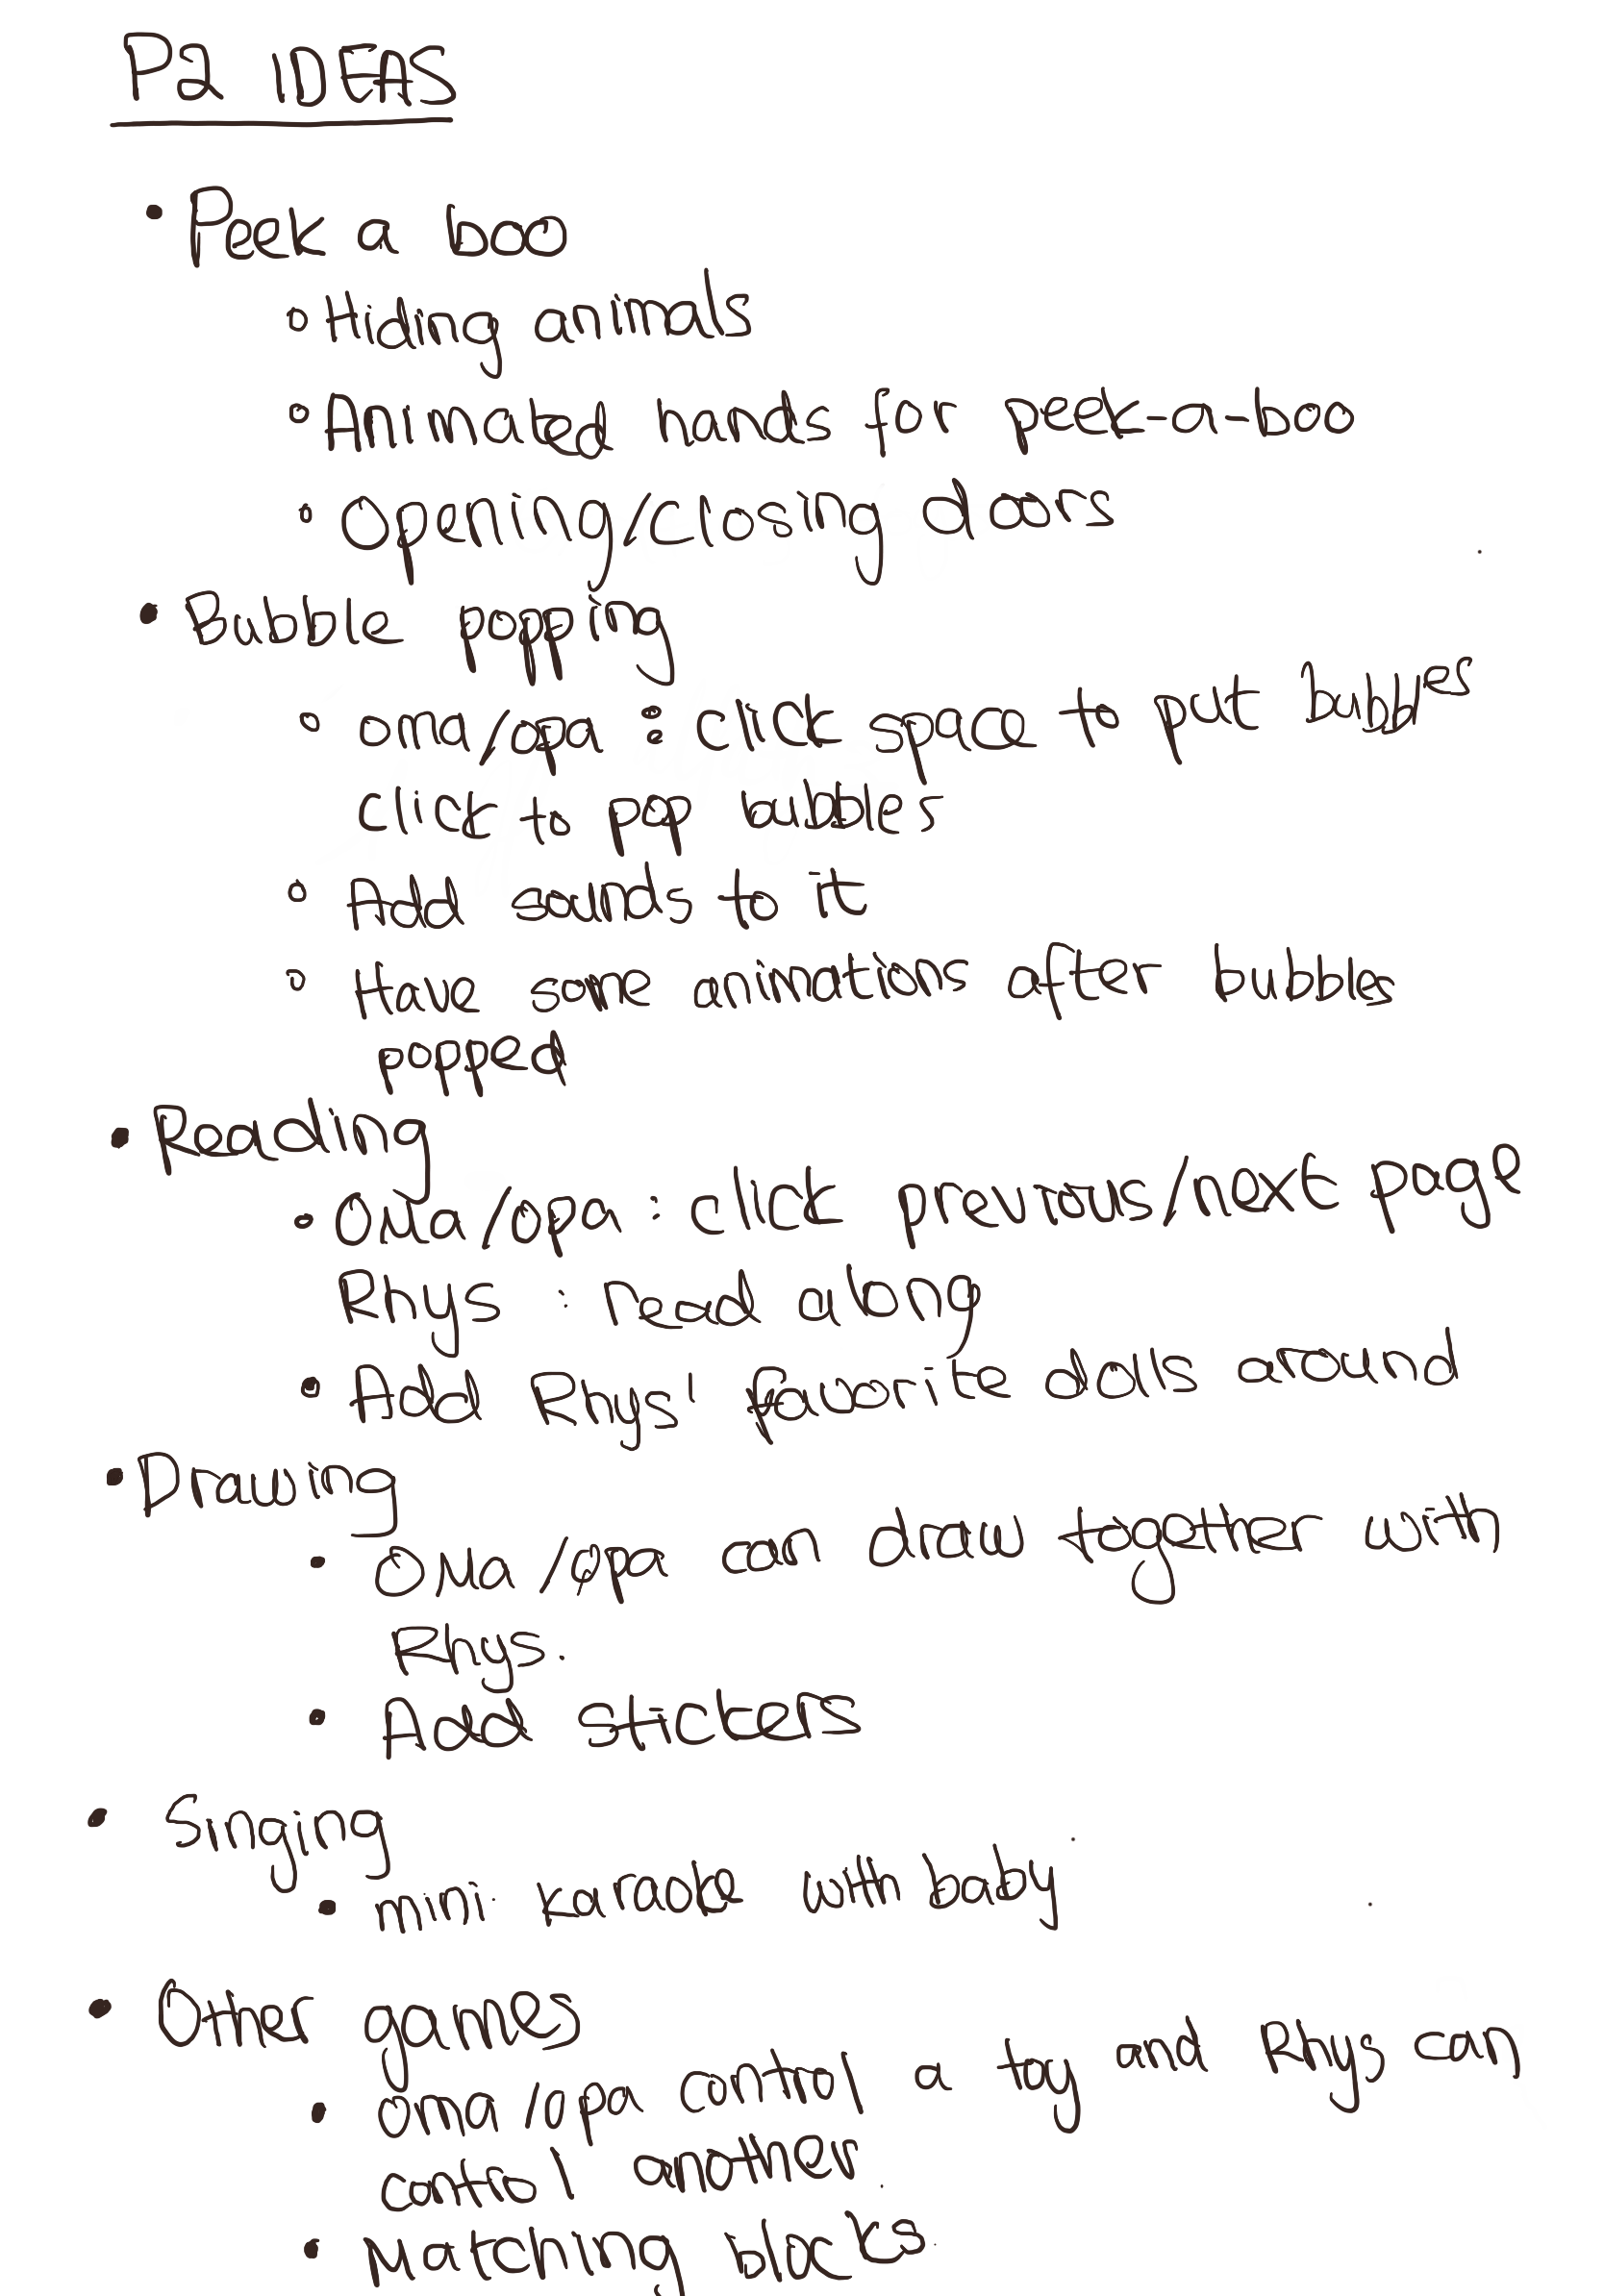 P2 IDEAS
• Peek a boo
◦ Hiding animals
◦ Animated hands for peek-a-boo
◦ Opening/closing doors
• Bubble popping
◦ oma/opa : click space to put bubbles
click to pop bubbles
◦ Add sounds to it
◦ Have some animations after bubbles
popped
• Reading
• Oma/opa : click previous/next page
Rhys : read along
• Add Rhys' favorite dolls around
• Drawing
• Oma/opa can draw together with
Rhys.
• Add stickers
• Singing
• mini karaoke with baby
• Other games
• oma/opa control a toy and Rhys can
control another.
• Matching blocks